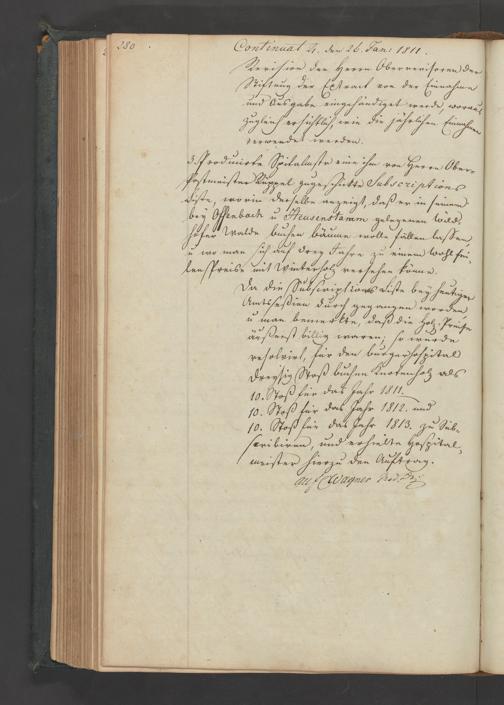 280
Continuat 4. den 26. Jan: 1811.
Revision den Herrn Oberrevisoren der
Stiftung der Extract von der Einnahme
und Ausgabe eingehändiget werde, woraus
zugleich ersichtlich, wie die jährlichen Einnahmen
verwendet werden.
3. Producirte Spitalmstr eine ihm von Herrn Ober-
Postmeister Küppel zugeschickte Subscriptions
Liste, worin derselbe anzeigt, daß er in seinem
bey Offenbach u Heusenstamm gelegenen
Walde buchen bäume wolle fällen lassen,
u wo man sich auf drey Jahre zu einem wohlfei-
len Preise mit Winterholz versehen könne.
Da die Subscriptions Liste bey heutiger
Amtsession durch gegangen worden,
u man bemerkte, daß die Holz Preise
äußerst billig waren; so wurde
resolvirt, für den bürgerhospital
Dreysig Stoß buchen Knotenholz als
10. Stoß für das Jahr 1811.
10. Stoß für das Jahr 1812. und
10. Stoß für das Jahr 1813. zu Sub-
scribiren, und erhielte Hospital-
meister hierzu den Auftrag.
Wagner